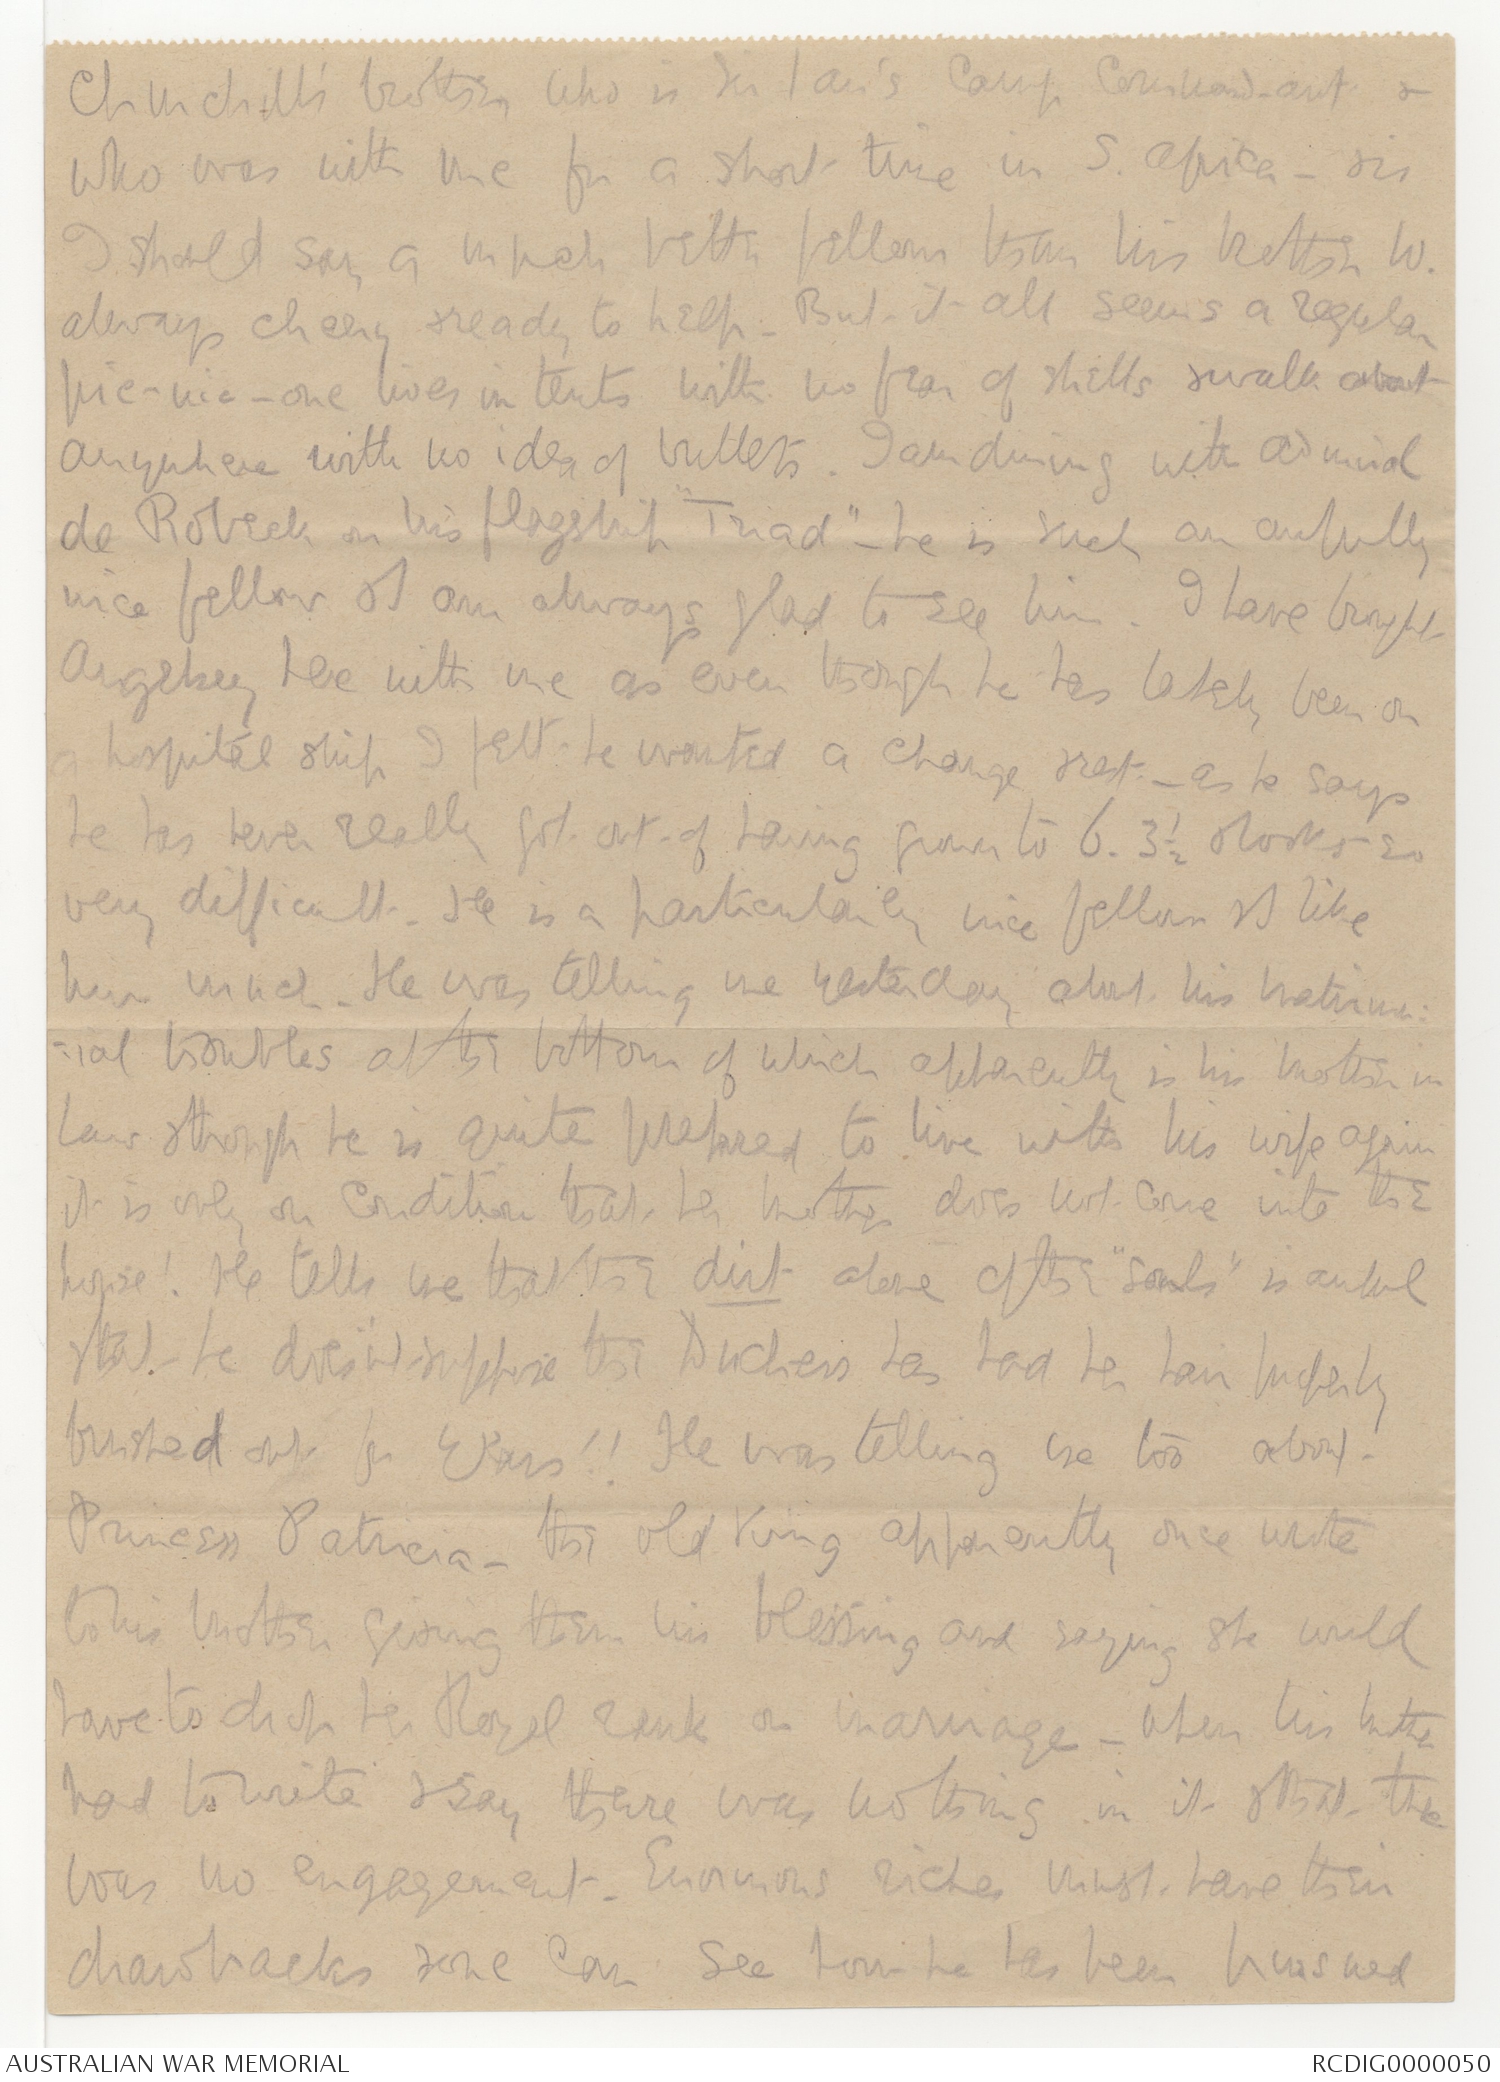 Churchill's brother, who is Sir Ian's Camp Command-ant &
who was with me for a short time in S. Africa - & is
I should say a much better fellow than his brother W.
always cheery & ready to help. But it all seems a regular
pic-nic - one lives in tents with no fear of shells & walk about
anywhere with no idea of bullets. I am dining with Admiral
de Robeck on his flagship "Triad" - he is such an awfully
nice fellow & I am always glad to see him. I have brought
Anglesey here with me as even though he has lately been on
a hospital ship I felt he wanted a change & rest. - as he says
he has never really got out of having grown to 6. 3½ & looks so
very difficult. He is a particularly nice fellow & I like
him much. He was telling me yesterday about his matrimon:
:ial troubles at the bottom of which apparently is his mother in
law & though he is quite prepared to live with his wife again
it is only on condition that her mother does not come into the
house! He tells me that the dirt alone of the "souls" is awful
& that he doesn't suppose the Duchess has had her hair properly
brushed out for years!! He was telling me too about
Princess Patricia - the old King apparently once wrote
to his mother giving them his blessing and saying she would
have to drop her Royal rank on marriage - when his mother
had to write & say there was nothing in it & that there
was no engagement. Enormous riches must have their
drawbacks & one can see how he has been pursued
AUSTRALIAN WAR MEMORIAL
RCDIG0000050